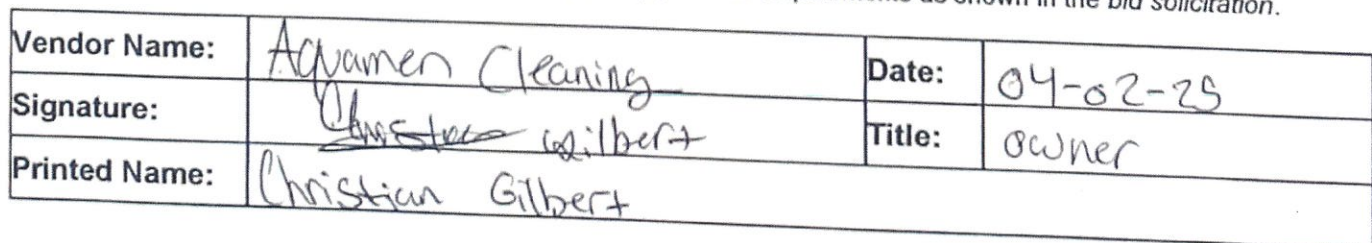 as shown in the bid solicitation.
Vendor Name: Aquamen Cleaning Date: 04-02-25
Signature: Christian Gilbert Title: owner
Printed Name: Christian Gilbert